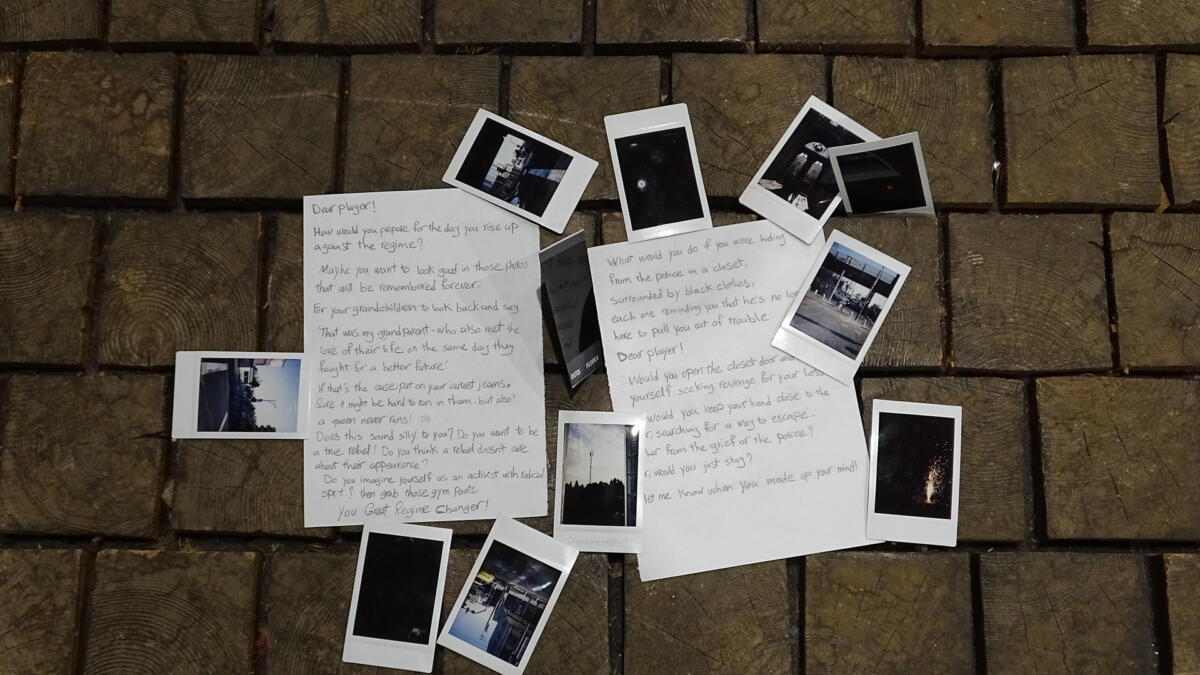 Dear player!
How would you pepare for the day you rise up
against the regime?
Maybe you want to look good in those photos
that will be remembered forever.
For your grandchildren to look back and say
'That was my grandparent-who also met the
love of their life on the same day they
fought for a better future'
If that's the case, put on your cutest jeans.
Sure it might be hard to run in them... but also!
a queen never runs!
Does this sound silly to you? Do you want to be
a true rebel? Do you think a rebel doesn't care
about their appearance?
Do you imagine yourself as an activist with radical
? then grab those gym pants,
You Great Regime Changer!
What would you do if you were hiding
from the police in a closet,
surrounded by black clothes,
each one reminding you that he's no lon
here to pull you out of trouble
Dear player!
Would you open the closet door
yourself, seeking revenge for your loss
would you keep your hand close to the
r, searching for a way to escape..
her from the grief or the police?
r, would you just stay?
let me know when you made up your mind!